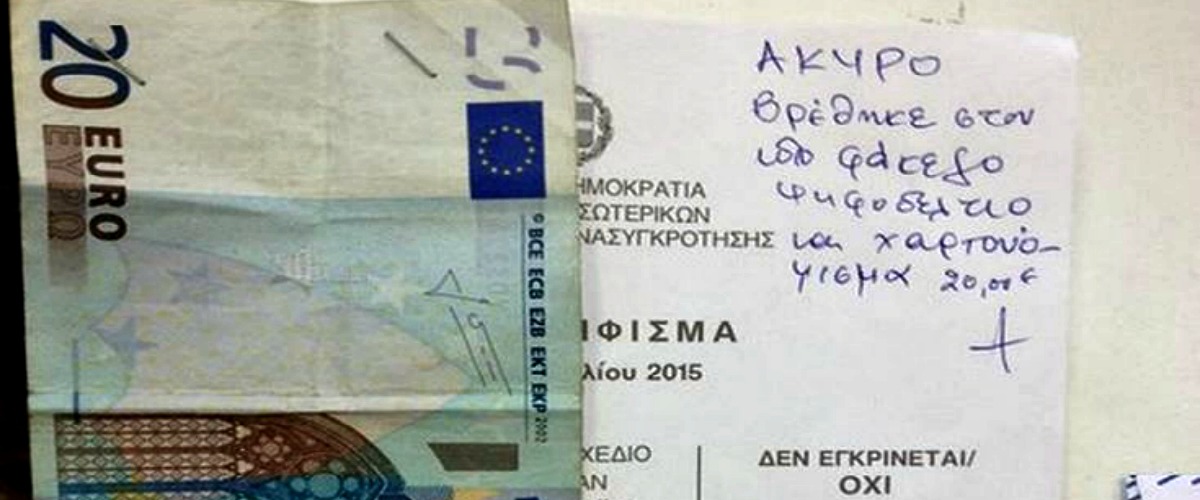 20 EURO
ΕΥΡΩ
© BCE ECB EZB EKT EKP 2002
ΗΜΟΚΡΑΤΙΑ
ΣΩΤΕΡΙΚΩΝ
ΝΑΣΥΓΚΡΟΤΗΣΗΣ
ΙΦΙΣΜΑ
λίου 2015
ΧΕΔΙΟ
ΑΝ
ΔΕΝ ΕΓΚΡΙΝΕΤΑΙ/
ΟΧΙ
ΑΚΥΡΟ
Βρέθηκε στον
ιδιο φάκελο
ψηφοδελτιο
και χαρτονό-
μισμα 20,00€